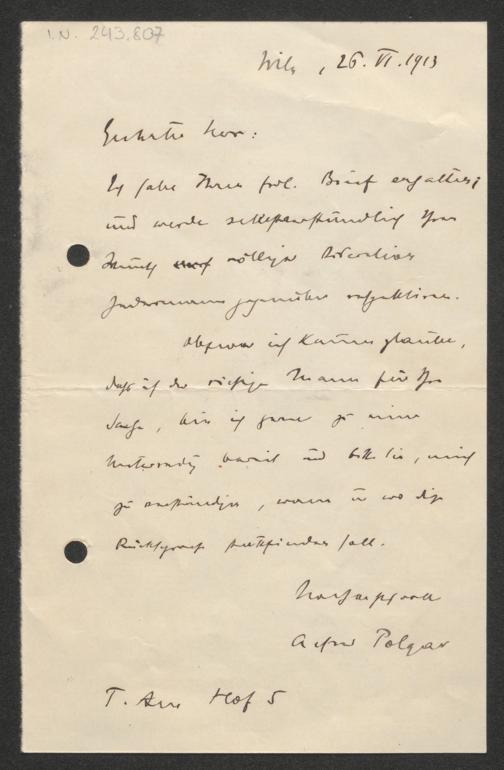 I.N. 243.807
Wien, 26. VI. 1913
Geehrter Herr:
Ich habe Ihren frdl. Brief erhalten;
und werde selbstverständlich Ihren
Wunsch nach völliger Discretion
jedermann gegenüber respektieren.
Obzwar ich kaum glaube,
daß ich der richtige Mann für Ihre
Sache, bin ich gerne zu einer
bereit und bitte Sie, mich
zu verständigen, wann u wo diese
Rücksprache stattfinden soll.
Hochachtungsvoll
Alfred Polgar
I. Am Hof 5